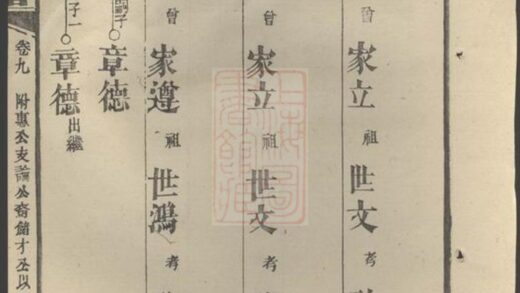 曾 家立 祖 世文 考
曾 家立 祖 世文 考
曾 家遵 祖 世鴻 考
嗣子 章德
子一 章德 出繼
卷九 附惠公支諭公裔儲才公以